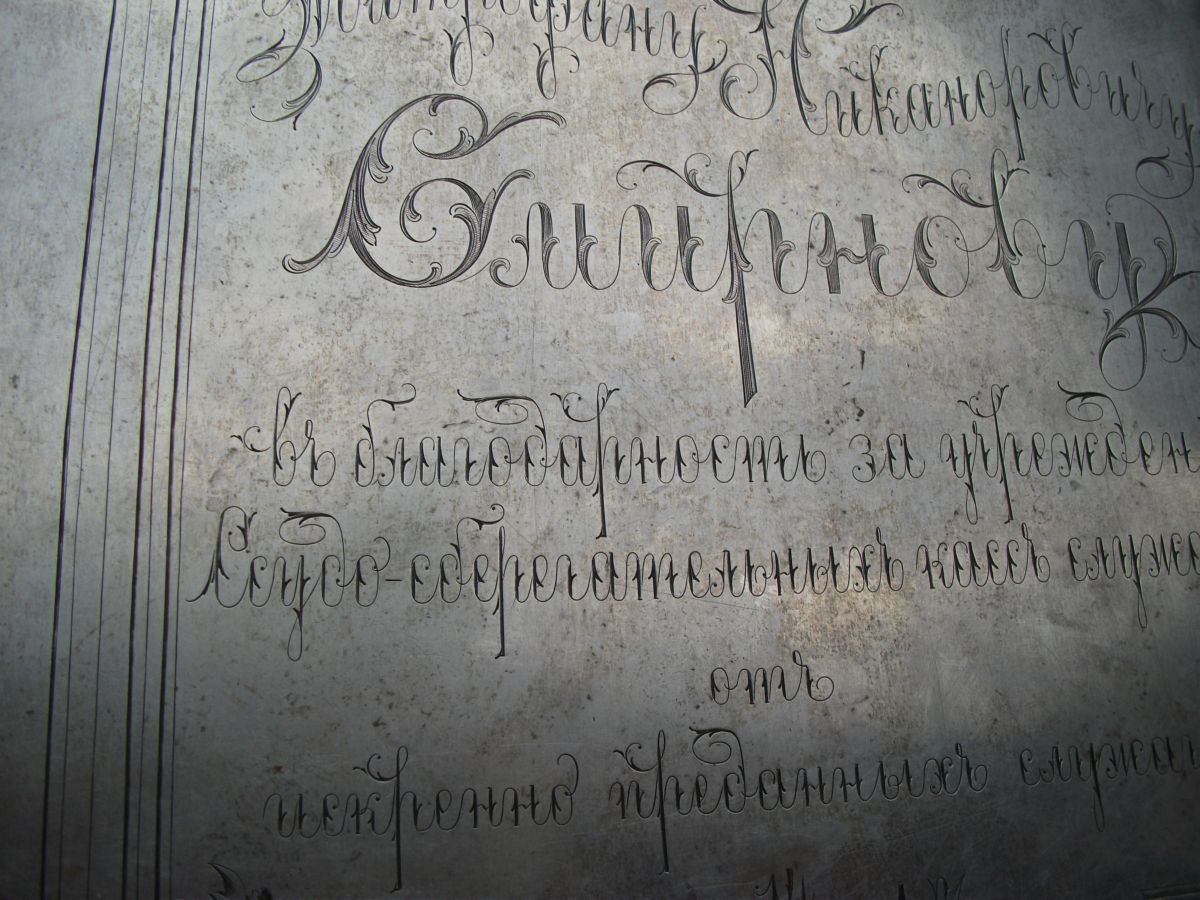 Митрофану Никаноровичу
Смирнову
въ благодарность за учрежден
Ссудо-сберегательныхъ кассъ служа
отъ
искренно преданныхъ служа